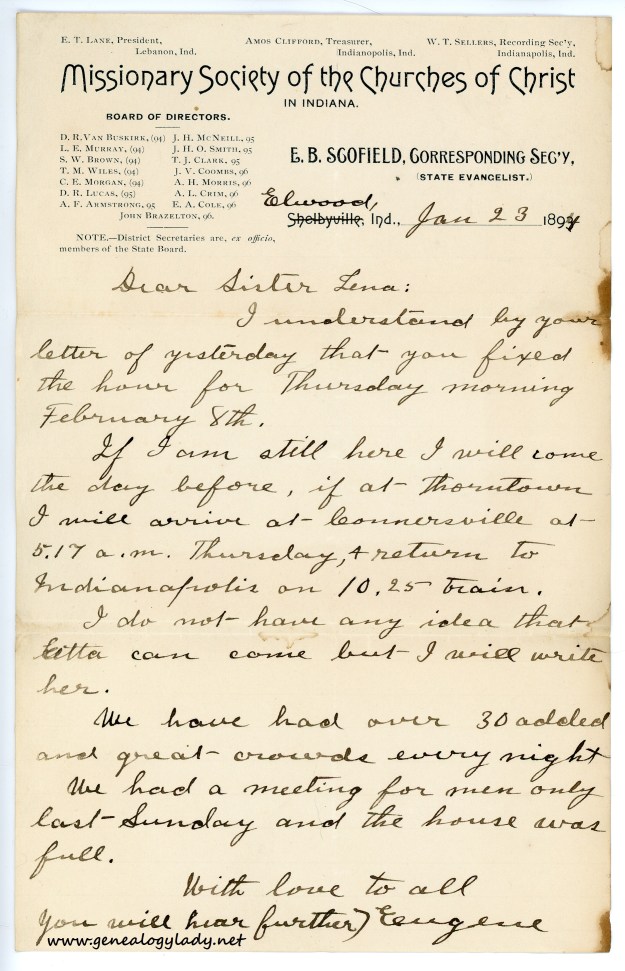 E. T. Lane, President,
Lebanon, Ind.
Amos Clifford, Treasurer,
Indianopolis, Ind.
W. T. Sellers, Recording Sec'y,
Indianapolis, Ind.
Missionary Society of the Churches of Christ
IN INDIANA.
BOARD OF DIRECTORS.
D. R. Van Buskirk, (94) J. H. McNeill, 95
L. E. Murray, (94) J. H. O. Smith, 95
S. W. Brown, (94) T. J. Clark, 95
T. M. Wiles, (94) J. V. Coombs, 96
C. E. Morgan, (94) A. H. Morris, 96
D. R. Lucas, (95) A. L. Crim, 96
A. F. Armstrong, 95 E. A. Cole, 96
John Brazelton, 96.
NOTE.—District Secretaries are, ex officio,
members of the State Board.
E. B. SCOFIELD, Corresponding Sec'y,
(STATE EVANGELIST.)
Elwood,
Shelbyville, Ind., Jan 23 1894
Dear Sister Lena:
I understand by your
letter of yesterday that you fixed
the hour for Thursday morning
February 8th.
If I am still here I will come
the day before, if at Thorntown
I will arrive at Connersville at
5.17 a.m. Thursday, & return to
Indianapolis on 10.25 train.
I do not have any idea that
Etta can come but I will write
her.
We have had over 30 added
and great crowds every night
We had a meeting for men only
last Sunday and the house was
full.
With love to all
You will hear further) Eugene
www.genealogylady.net